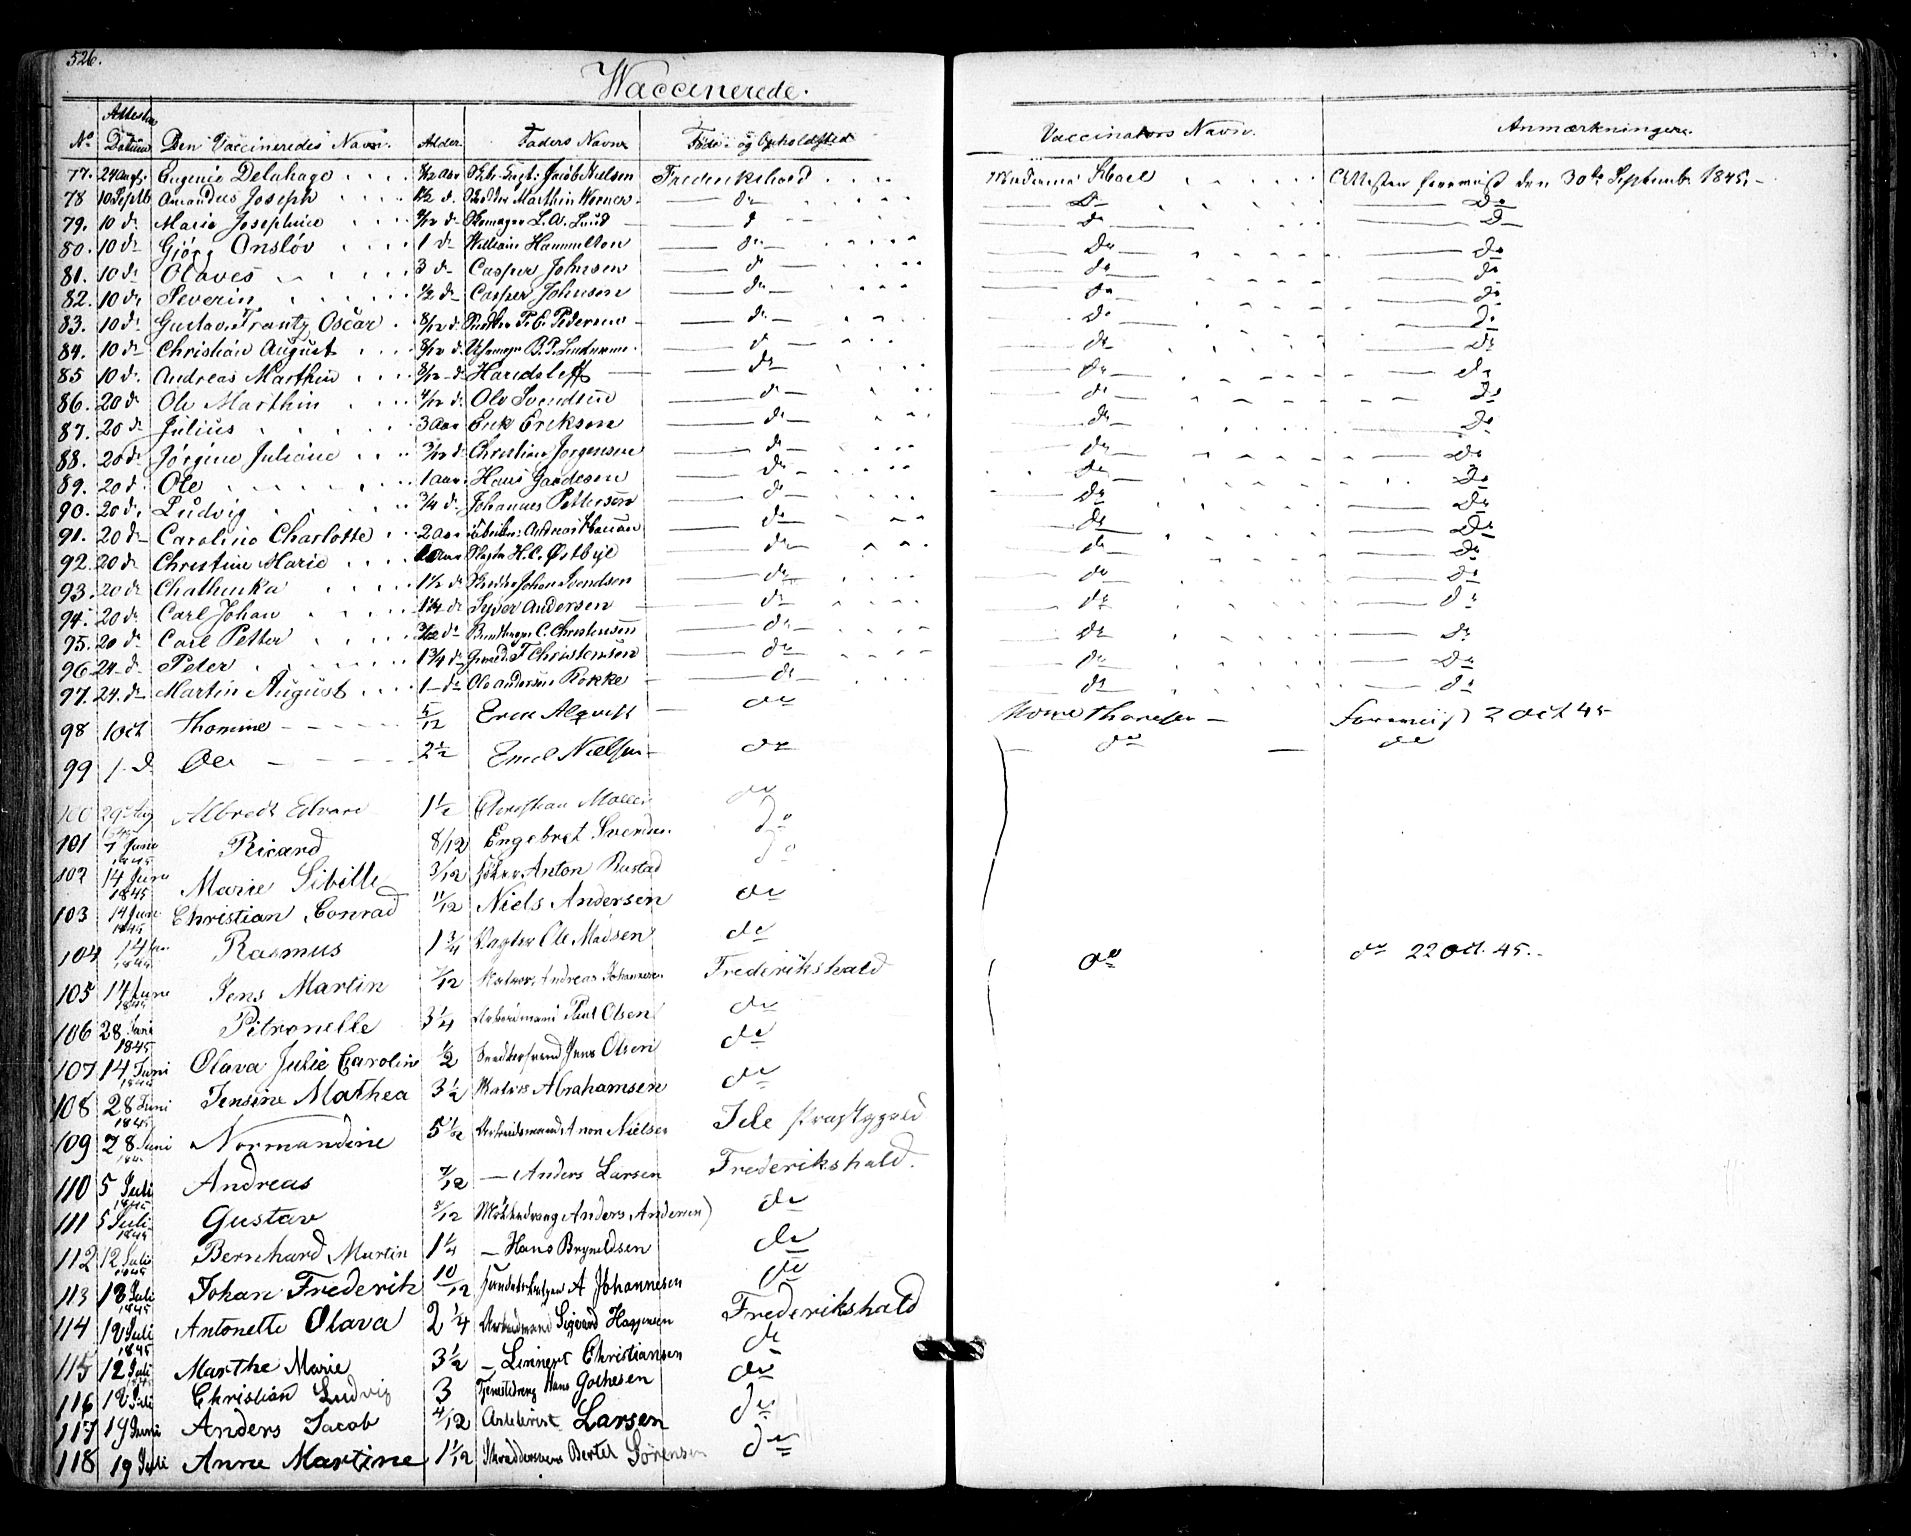 526.
Waccinerede.
No Attestens Datum Den Vaccineredes Navn. Alder. Faders Navn Føde- og Opholdssted Vaccinators Navn. Anmærkninger.
77. 24 Aug. Eugenie Delahage Jacob Nielsen Frederikshald Madame Attesten foreviist den 30te Septembr 1845.
78 10 Septb Amandus Joseph 1½ d. Marthin Werner do Do Do
79. 10 do Marie Josephine L. A. Lund d do D
80. 10 do Gjörg Onslöv 1 do William Hammelton do Do do
81. 10 do Olaves 3 do Casper Johnsen do do do
82. 10 do Severin ½ do Casper Johnson do do do
83. 10 do Gustav Frantz Oscar 8/12 d. P. E. Pedersen do Do do
84. 10 do Christian August 8/12 d. B. P. d do do
85 10 do Andreas Marthin 8/12 d. Haridsleff do do do
86. 20 do Ole Marthin 4/12 d. Ole Svendsen do do do
87. 20 do Julius 3 Aar Erik Erikson do do do
88. 20 do Jörgine Juliane 3/12 d Christian Jorgensen do do do
89. 20 d. Ole 1 Aar Hans do do do
90. 20 do Ludvig ¾ d. Johannes Pettersen do do do
91. 20 do Caroline Charlotte 2 Aar Andreas do do do
92. 20 do Christine Marie Aar H. C. Østbye do do do
93. 20 do Chathinka 1½ do Johan Svendsen do do do
94. 20 do Carl Johan 1¼ do Syver Andersen do do do
95. 20 do Carl Petter do C. Christensen do do do
96 24 do Peter 1¾ do T Christensen do do do
97. 24. do Martin August 1 do Ole Andersen Rokke do do do
98 1 Oct Thomine 5/12 Erik Alqvist do Mome Thoresen foreviist 2 Oct 45
99 1 d Ole 2½ Emil Nielsen do do do
100 29 Aug 1845 Albredt Edvard 1½ Christian Moller do
101 7 June 1845 Ricard 8/12 Engebret Svendsen do
102 14 June 1845 Marie Sibille 3/12 Anton Rustad do
103 14 June 1845 Christian Conrad 11/12 Niels Andersen do
104 14 Jun 1845 Rasmus 1¾ Vagter Ole Madsen do do do 22 Oct. 45.
105 14 June 1845 Jens Martin 7/12 Andreas Johannesen Frederikshald
106 28 Juni 1845 Pitronelle 3¼ Arbeidmand Paul Olsen do
107 14 Juni 1845 Olava Julie Caroline ½ Snedkersvend Jens Olsen do
108 28 Juni 1845 Jensine Mathea 3½ Abrahamsen do
109 28 Juni 1845 Normandine 5½ Arbeidsmand Nielsen Ide Præstegjeld
110 5 Juli 1845 Andreas 7/12 — Anders Larsen Frederikshald.
111 5 Juli 1845 Gustav 5/12 Anders Andersen do
112 12 Juli 1845 Bernhard Martin 1¼ — Hans Brynildsen do
113 12 Juli 1845 Johan Frederik 10/12 A Johannesen do
114 12 Juli 1845 Antonette Olava 2¼ Arbeidmand Sigvard Haagensen Frederikshald
115 12 Juli 1845 Marthe Marie 3½ — Linnert Christiansen do
116 12 Juli Christian Ludvig 3 Hans Gothesen do
117 19 Juni Anders Jacob 4/12 Larsen do
118 19 Juli Anne Martine 1½ Bertel Sörensen do